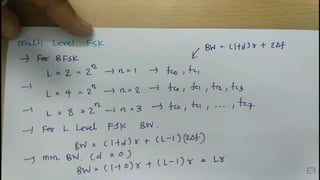 Multi Level FSK
→ For BFSK
BW = (1+d)r + 2Δf
L = 2 = 2^n → n = 1 → fc0, fc1
→ L = 4 = 2^n → n = 2 → fc0, fc1, fc2, fc3
→ L = 8 = 2^n → n = 3 → fc0, fc1, ..., fc7
→ For L Level FSK BW.
BW = (1+d)r + (L-1)(2Δf)
→ min BW. (d = 0)
BW = (1+0)r + (L-1)r = Lr